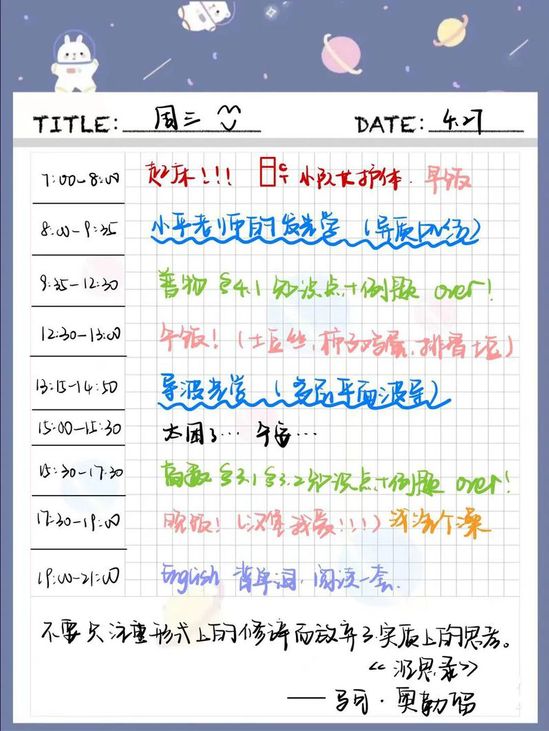 TITLE: 周三
DATE: 4.27
7:00-8:00 起床!!! 早饭
8:00-9:35 小平老师的发光学
9:35-12:30 普物 §4.1 知识点+例题 over!
12:30-13:00 午饭!(土豆丝,柿子鸡蛋,排骨土豆)
13:15-14:50 导波光学 (多层平面波导)
15:00-15:30 太困了… 午睡…
15:30-17:30 高数 §3.1 §3.2 知识点+例题 over!
17:30-19:00 晚饭!(汉堡我最!!!) 浅洽个澡
19:00-21:00 English 背单词,阅读一套.
不要只注重形式上的修饰而放弃了实质上的思考。
《沉思录》
——马可·奥勒留